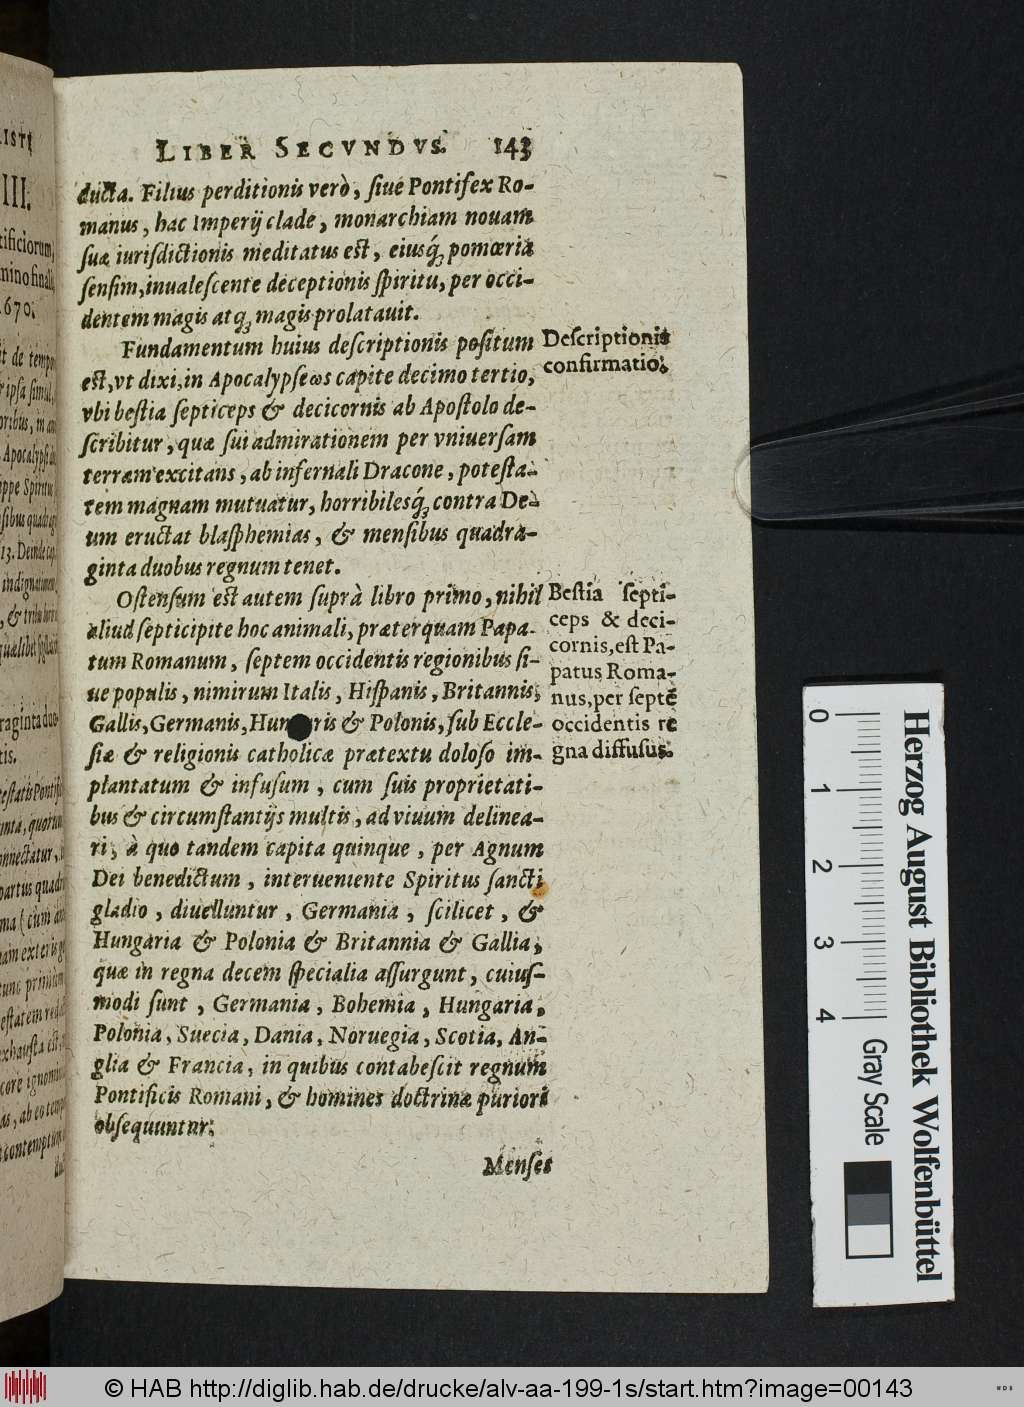 LIBER SECVNDVS. 143
ducta. Filius perditionis verò, ſiue Pontifex Ro-
manus, hac Imperij clade, monarchiam nouam
ſuæ iuriſdictionis meditatus eſt, eiusq́ꝫ pomœria
ſenſim, inualeſcente deceptionis ſpiritu, per occi-
dentem magis atqꝫ magis prolatauit.
Fundamentum huius deſcriptionis poſitum
eſt, vt dixi, in Apocalypſeωs capite decimo tertio,
vbi beſtia ſepticeps & decicornis ab Apoſtolo de-
ſcribitur, quæ ſui admirationem per vniuerſam
terram excitans, ab infernali Dracone, poteſta-
tem magnam mutuatur, horribilesq́ꝫ contra De-
um eructat blaſphemias, & menſibus quadra-
ginta duobus regnum tenet.
Deſcriptionis
confirmatio.
Oſtenſum eſt autem ſuprà libro primo, nihil
aliud ſepticipite hoc animali, præterquam Papa-
tum Romanum, ſeptem occidentis regionibus ſi-
ue populis, nimirum Italis, Hiſpanis, Britannis,
Gallis, Germanis, Hun ris & Polonis, ſub Eccle-
ſiæ & religionis catholicæ prætextu doloſo im-
plantatum & infuſum, cum ſuis proprietati-
bus & circumſtantijs multis, ad viuum delinea-
ri, à quo tandem capita quinque, per Agnum
Dei benedictum, interueniente Spiritus ſancti
gladio, diuelluntur, Germania, ſcilicet, &
Hungaria & Polonia & Britannia & Gallia,
quæ in regna decem ſpecialia aſſurgunt, cuiuſ-
modi ſunt, Germania, Bohemia, Hungaria,
Polonia, Suecia, Dania, Noruegia, Scotia, An-
glia & Francia, in quibus contabeſcit regnum
Pontificis Romani, & homines doctrinæ puriori
obſequuntur.
Beſtia ſepti-
ceps & deci-
cornis, eſt Pa-
patus Roma-
nus, per ſeptē
occidentis re
gna diffuſus.
Menſes
0 1 2 3 4
Gray Scale
Herzog August Bibliothek Wolfenbüttel
© HAB http://diglib.hab.de/drucke/alv-aa-199-1s/start.htm?image=00143